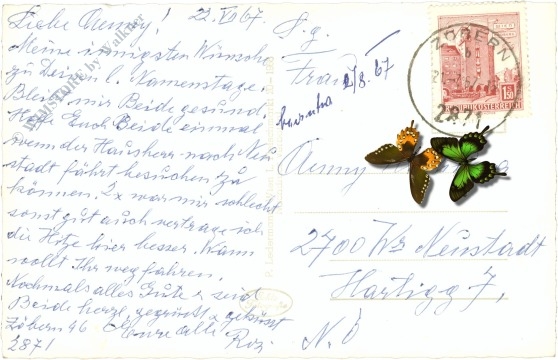 Liebe Aenny! 22. VII 67.
Meine innigsten Wünsche
zu Deinem l. Namenstage.
Bleibt mir Beide gesund.
Hoffe Euch Beide einmal
wenn der Hausherr nach Neu
stadt fährt besuchen zu
können. 2x war mir schlecht
sonst gut auch vertrage ich
die Hitze hier besser. Wann
wollt Ihr wegfahren.
Nochmals alles Gute u seid
Beide herzl. gegrüßt u geküsst
Zöbern 46 Eure alte
2871 Roz.
© HEUSTORE by Walkner
S. g.
Frau
2/8. 67
Aenny
2700 Wr Neustadt
Hartigg 7,
N. Ö
ZÖBERN
b
2871
1.50
REPUBLIK ÖSTERREICH